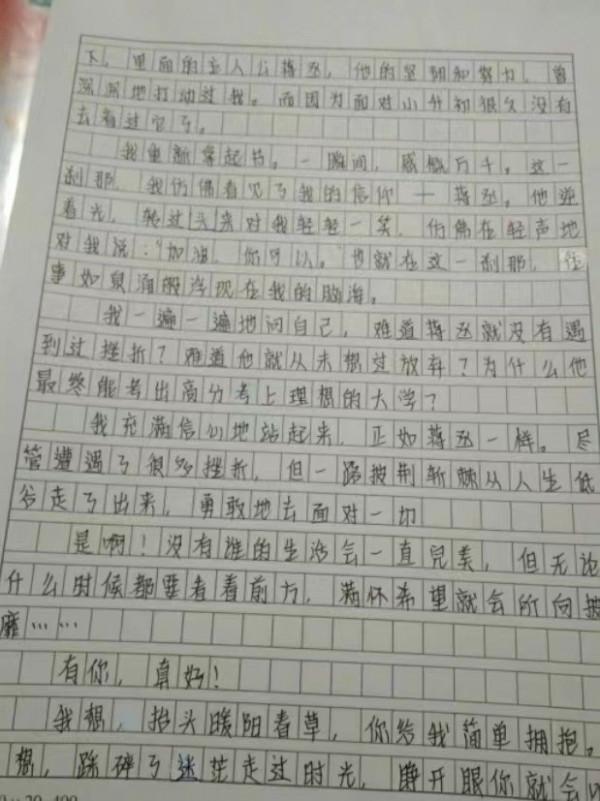 下，里面的主人公蒋丞，他的坚韧和努力，曾
深深地打动过我。而因为面对小升初很久没有
去看过它了。
我重新拿起书。一瞬间，感慨万千。这一
刹那，我仿佛看见了我的信仰——蒋丞。他逆
着光，转过头来对我轻轻一笑，仿佛在轻声地
对我说："加油，你可以。"也就在这一刹那，往
事如泉涌般浮现在我的脑海。
我一遍一遍地问自己，难道蒋丞就没有遇
到过挫折？难道他就从未想过放弃？为什么他
最终能考出高分考上理想的大学？
我充满信心地站起来，正如蒋丞一样。尽
管遭遇了很多挫折，但一路披荆斩棘从人生低
谷走了出来，勇敢地去面对一切
是啊！没有谁的生活会一直完美，但无论
什么时候都要看着前方，满怀希望就会所向披
靡……
有你，真好！
我想，抬头暖阳春草，你给我简单拥抱。
想，踩碎了迷茫走过时光，睁开眼你就会